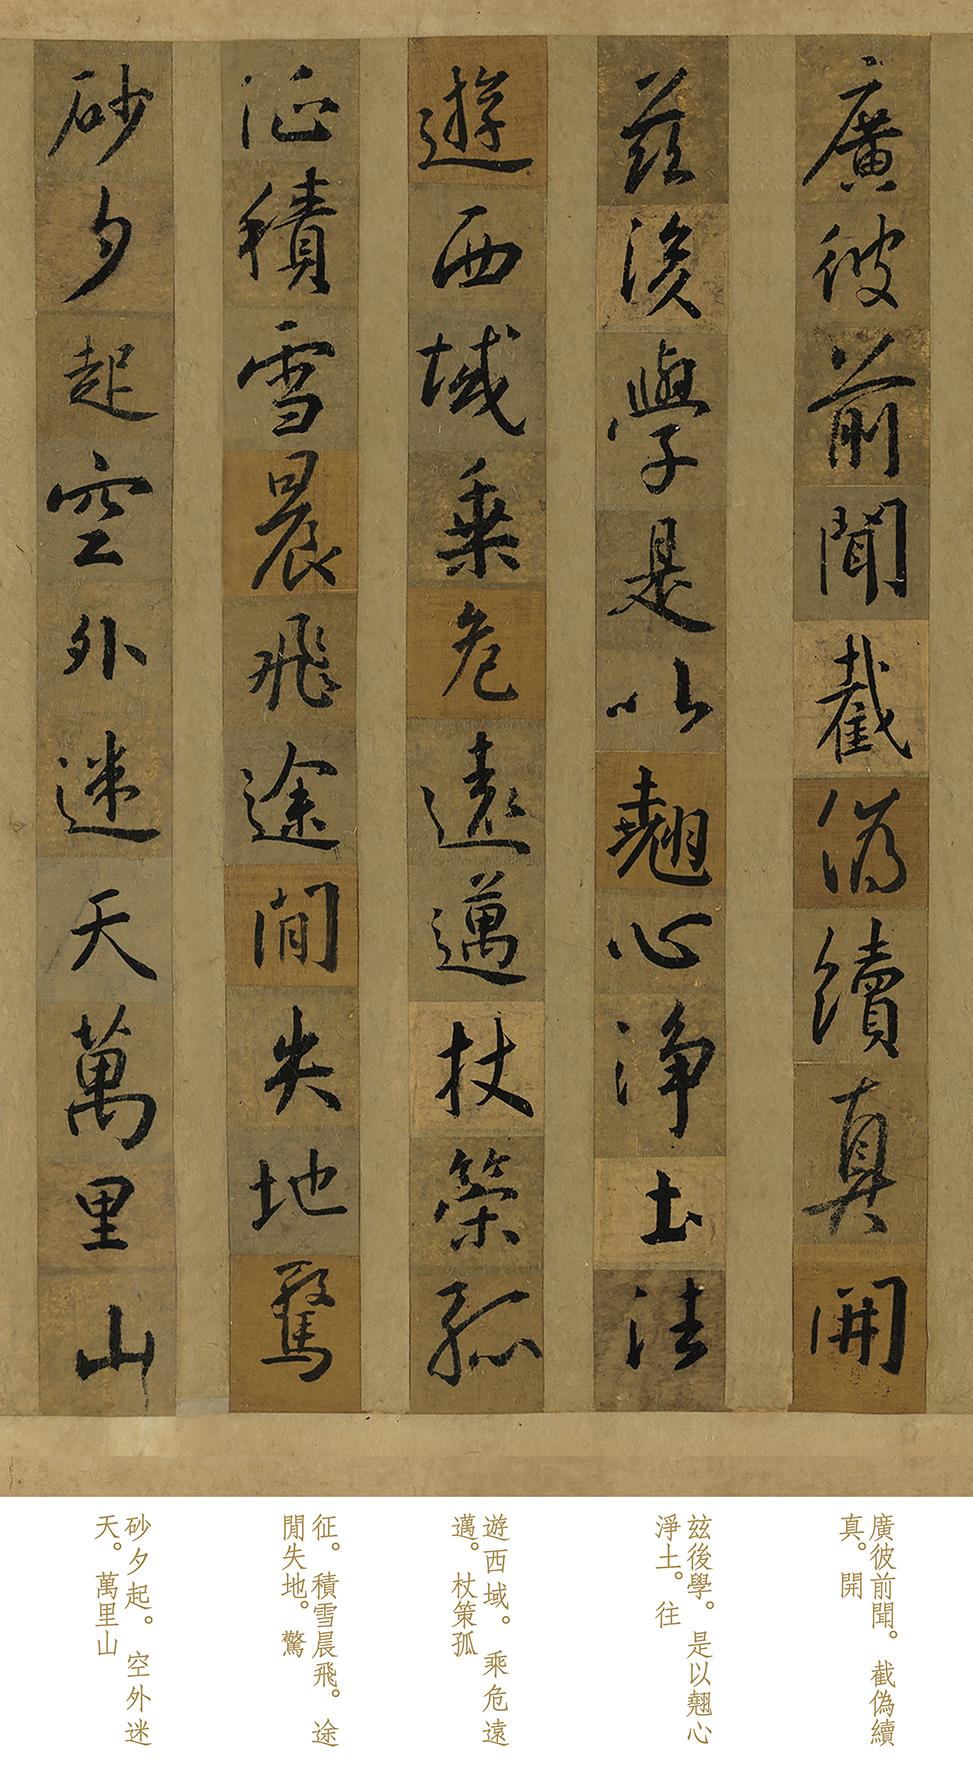 廣彼前聞截偽續真開
茲後學是以翹心淨土法
遊西域乘危遠邁杖策孤
征積雪晨飛途閒失地驚
砂夕起空外迷天萬里山
廣彼前聞。截偽續
真。開
茲後學。是以翹心
淨土。往
遊西域。乘危遠
邁。杖策孤
征。積雪晨飛。途
閒失地。驚
砂夕起。空外迷
天。萬里山